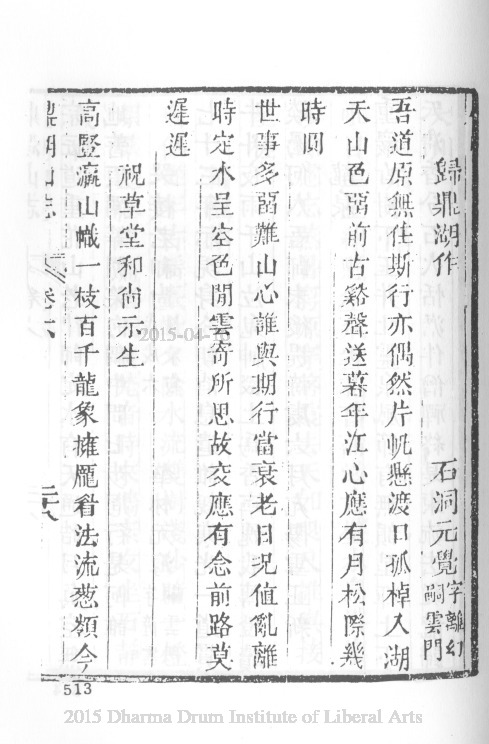 歸鼎湖作　石洞元覺字離幻嗣雲門
吾道原無住斯行亦偶然片帆懸渡口孤棹入湖
天山色畱前古谿聲送暮年江心應有月松際幾
時圓
世事多畱難山心誰與期行當衰老日況值亂離
時定水呈空色閒雲寄所思故交應有念前路莫
遲遲
祝草堂和尚示生
高豎瀛山幟一枝百千龍象擁龐睂法流葱嶺今
鼎湖山志　卷六
513
2015 Dharma Drum Institute of Liberal Arts